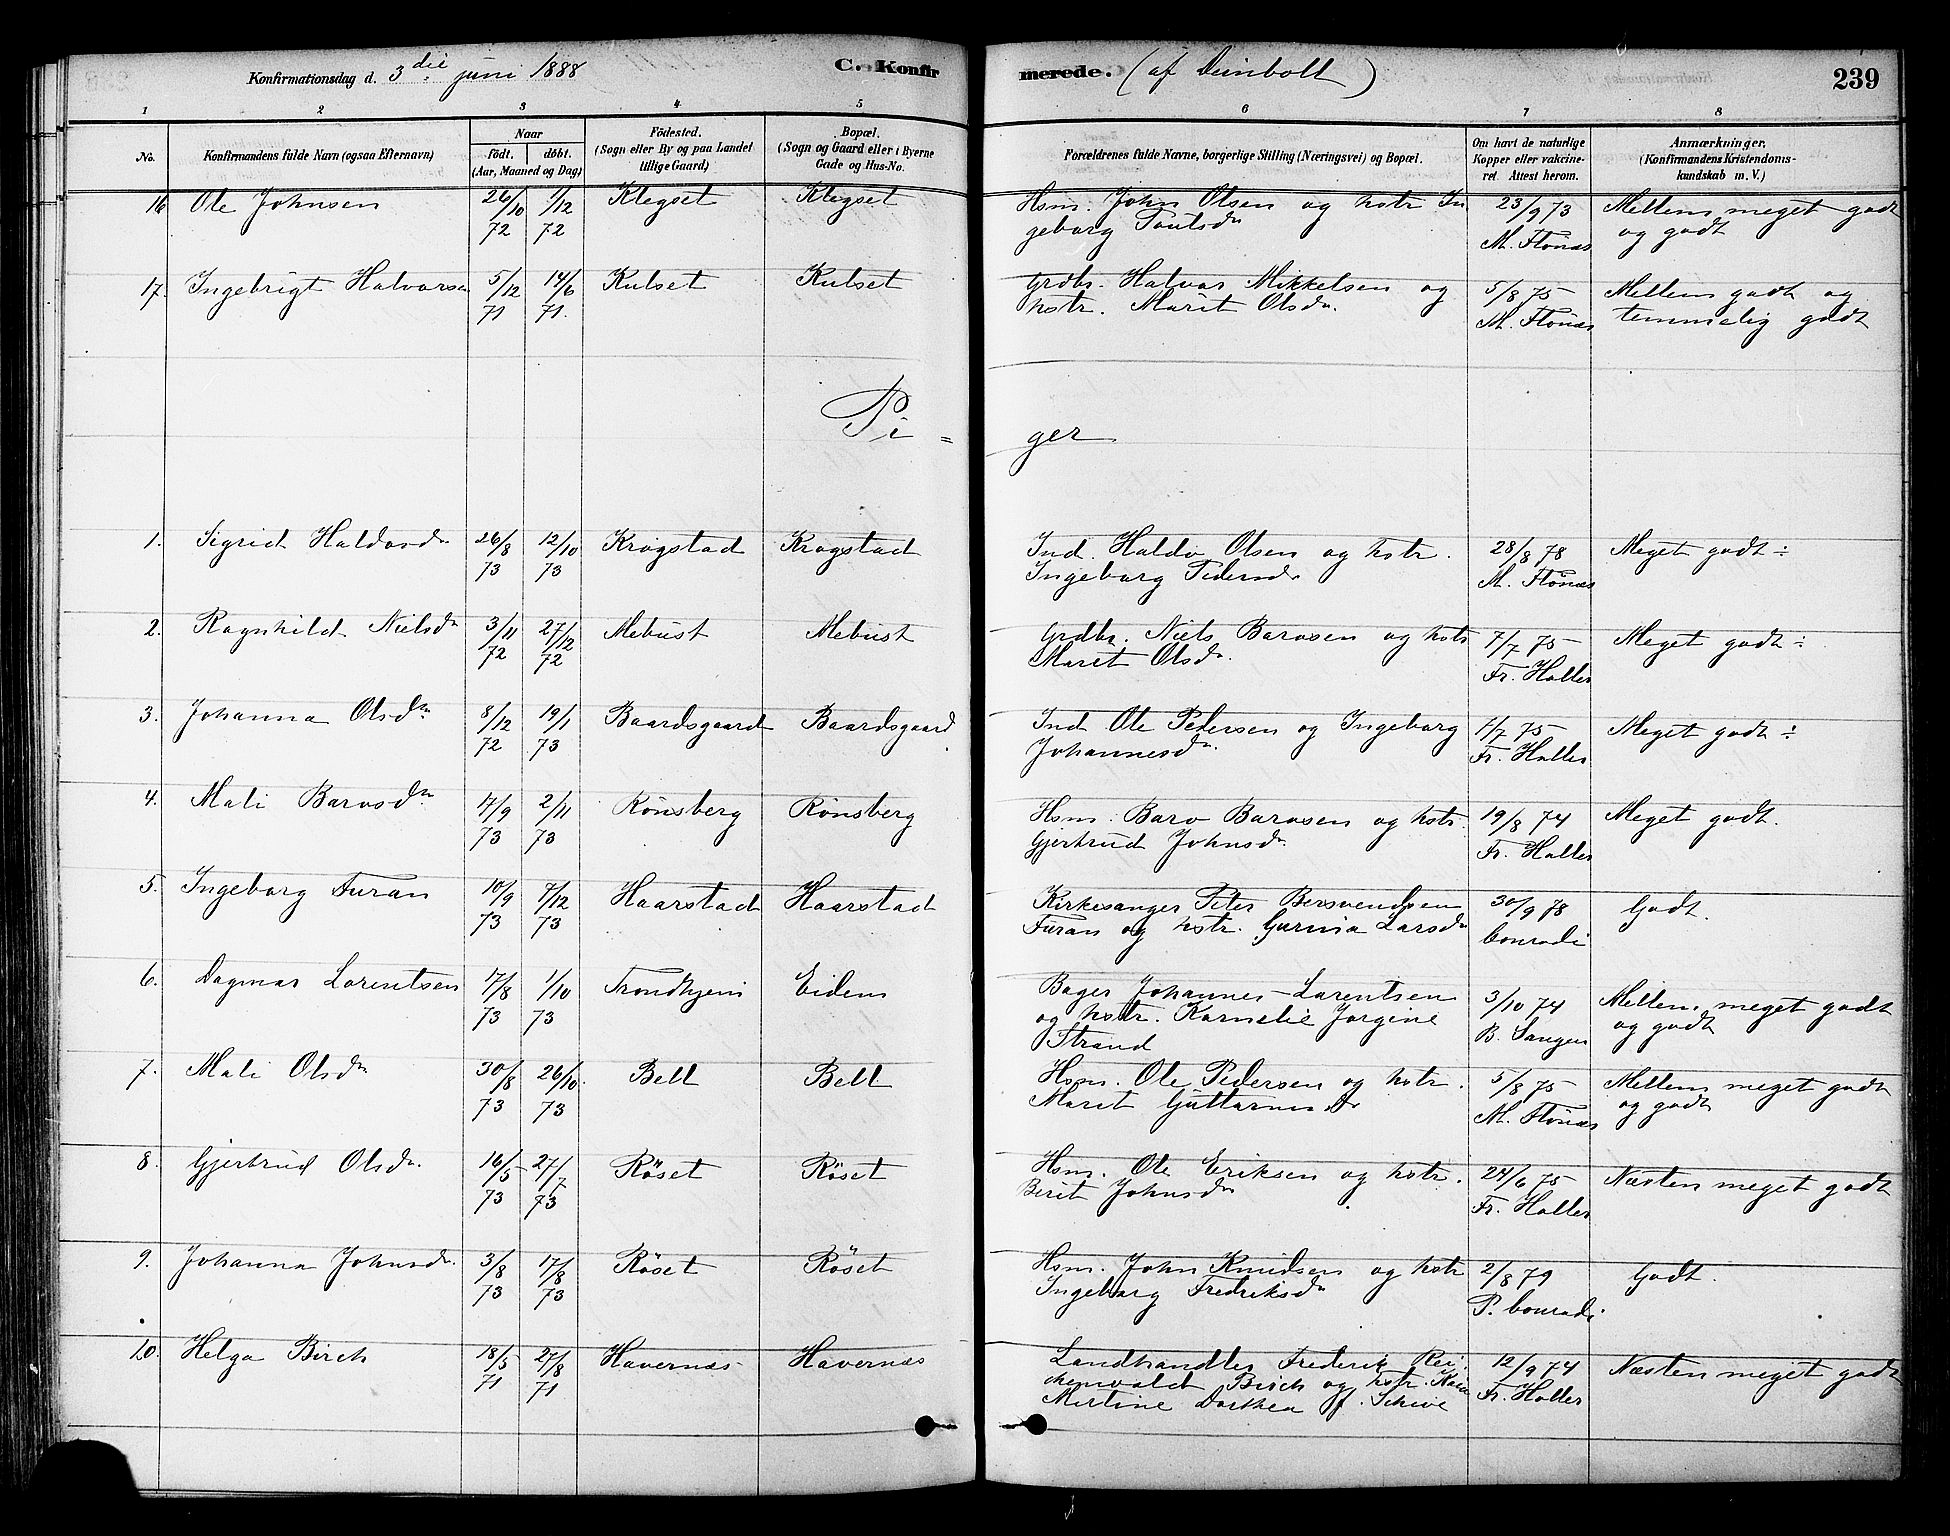 Konfirmationsdag d. 3die juni 1888
C. Konfirmerede. (af Deinboll)
239
1 2 3 4 5 6 7 8
No.
Konfirmandens fulde Navn (ogsaa Efternavn)
Naar
født. døbt.
(Aar, Maaned og Dag)
Födested.
(Sogn eller By og paa Landet
tillige Gaard)
Bopæl.
(Sogn og Gaard eller i Byerne
Gade og Hus-No.
Forældrenes fulde Navne, borgerlige Stilling (Næringsvei) og Bopæl.
Om havt de naturlige
Kopper eller vakcineret. Attest herom.
Anmærkninger.
(Konfirmandens Kristendomskundskab m. V.)
16 Ole Johnsen 26/10 72 1/12 72 Klegset Klegset Hsm. John Olsen og hstr In
geborg Poulsdr 23/9 73 M. Flönæs Mellem meget godt
og godt
17. Ingebrigt Halvorsen 5/12 71 14/6 71. Kulset Kulset Grdbr. Halvor Mikkelsen og
hstr. Marit Olsdr. 5/8 75 M. Flönæs Mellem godt og
temmelig godt
Pi=
ger
1. Sigrid Haldosdr 26/8 73 12/10 73 Krogstad Krogstad Ind. Haldo Olsen og hstr.
Ingeborg Pedersdr 28/8 78 M. Flönæs Meget godt ÷
2. Ragnhild Nielsdr 3/11 72 27/12 72 Mebust Mebust Grdbr. Niels Barosen og hstr
Marit Olsdr. 7/7 75 Fr. Holler Meget godt ÷
3. Johanna Olsdr 8/12 72 19/1 73 Baardsgaard Baardsgaard Ind Ole Pedersen og Ingeborg
Johannesdr. 7/7 75 Fr. Holler Meget godt ÷
4. Mali Barosdr 4/9 73 2/11 73 Rönsberg Rönsberg Hsm. Baro Barosen og hstr.
Gjertrud Johnsdr 19/8 74 Fr. Holler Meget godt.
5. Ingeborg Furan 10/9 73 7/12 73 Haarstad Haarstad Kirkesanger Peter Bersvendsen
Furan og hstr. Gurina Larsdr 30/9 78 Conradi Godt.
6. Dagmar Lorentsen 17/8 73 1/10 73 Trondhjem Eidem Bager Johannes Lorentsen
og hstr. Kornelie Jorgine
Strand 3/10 74 B. Sangen Mellem meget godt
og godt
7. Mali Olsdr 30/8 73 26/10. 73 Bell Bell Hsm. Ole Pedersen og hstr.
Marit Guttormsdr 5/8 75 M. Flönæs Mellem meget godt
og godt
8. Gjertrud Olsdr. 16/5 73 27/7 73 Röset Röset Hsm. Ole Eriksen og hstr.
Berit Johnsdr 24/6 75 Fr. Holler Næsten meget godt
9. Johanna Johnsdr. 3/8 73 17/8 73 Röset Röset Hsm. John Knudsen og hstr
Ingeborg Fredriksdr 2/8 79 P. Conradi. Godt.
10. Helga Birch 18/5 71 27/8 71 Havernæs Havernæs Landhandler Frederik Rei-
chenwaldt Birch og hstr.
Mertine Dorthea f. Schive 12/9 74 Fr. Holler Næsten meget godt